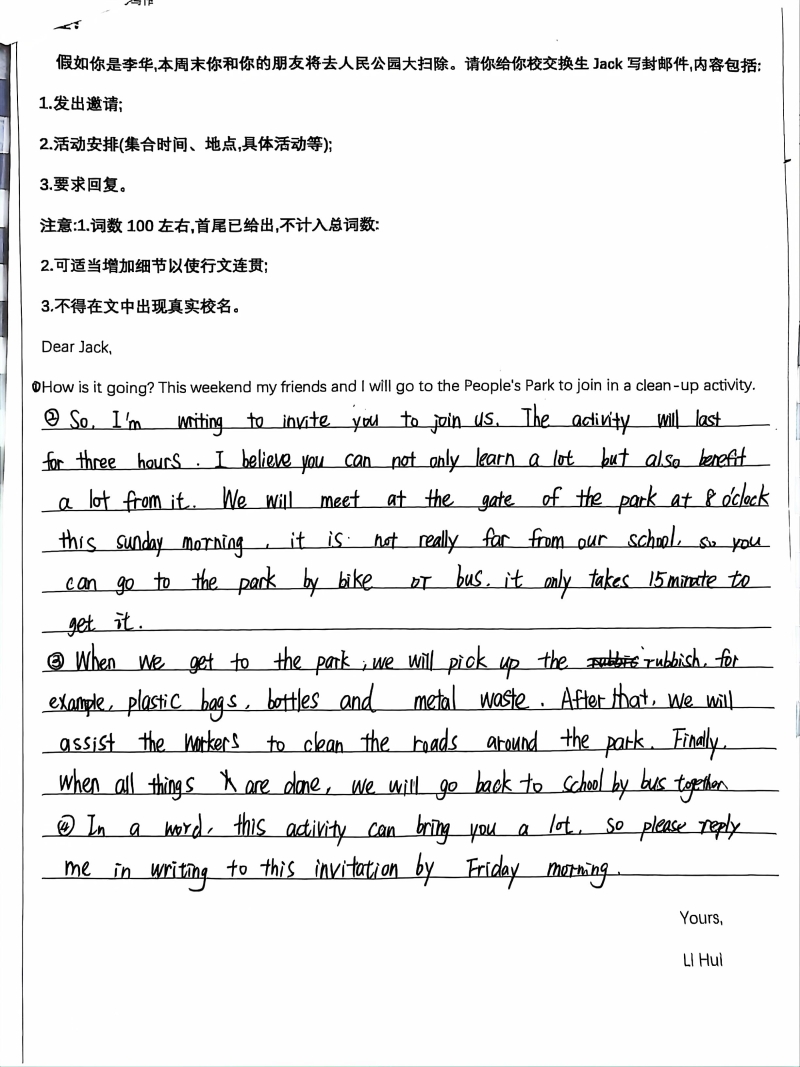 假如你是李华,本周末你和你的朋友将去人民公园大扫除。请你给你校交换生 Jack 写封邮件,内容包括:
1.发出邀请;
2.活动安排(集合时间、地点,具体活动等);
3.要求回复。
注意:1.词数 100 左右,首尾已给出,不计入总词数:
2.可适当增加细节以使行文连贯;
3.不得在文中出现真实校名。
Dear Jack,
①How is it going? This weekend my friends and I will go to the People's Park to join in a clean-up activity.
② So, I'm writing to invite you to join us. The activity will last
for three hours. I believe you can not only learn a lot but also benefit
a lot from it. We will meet at the gate of the park at 8 o'clock
this sunday morning, it is not really far from our school, so you
can go to the park by bike or bus. it only takes 15 minute to
get it.
③ When we get to the park, we will pick up the rubbish, for
example, plastic bags, bottles and metal waste. After that, we will
assist the workers to clean the roads around the park. Finally,
when all things are done, we will go back to school by bus together.
④ In a word, this activity can bring you a lot, so please reply
me in writing to this invitation by Friday morning.
Yours,
LI Hui